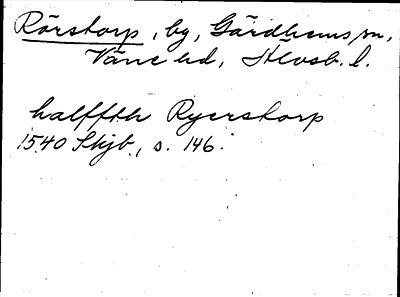 Rörstorp, by, Gärdhems sn,
Väne hd, Älvsb. l.
halffth Ryerstorp
1540 Skjb., s. 146.